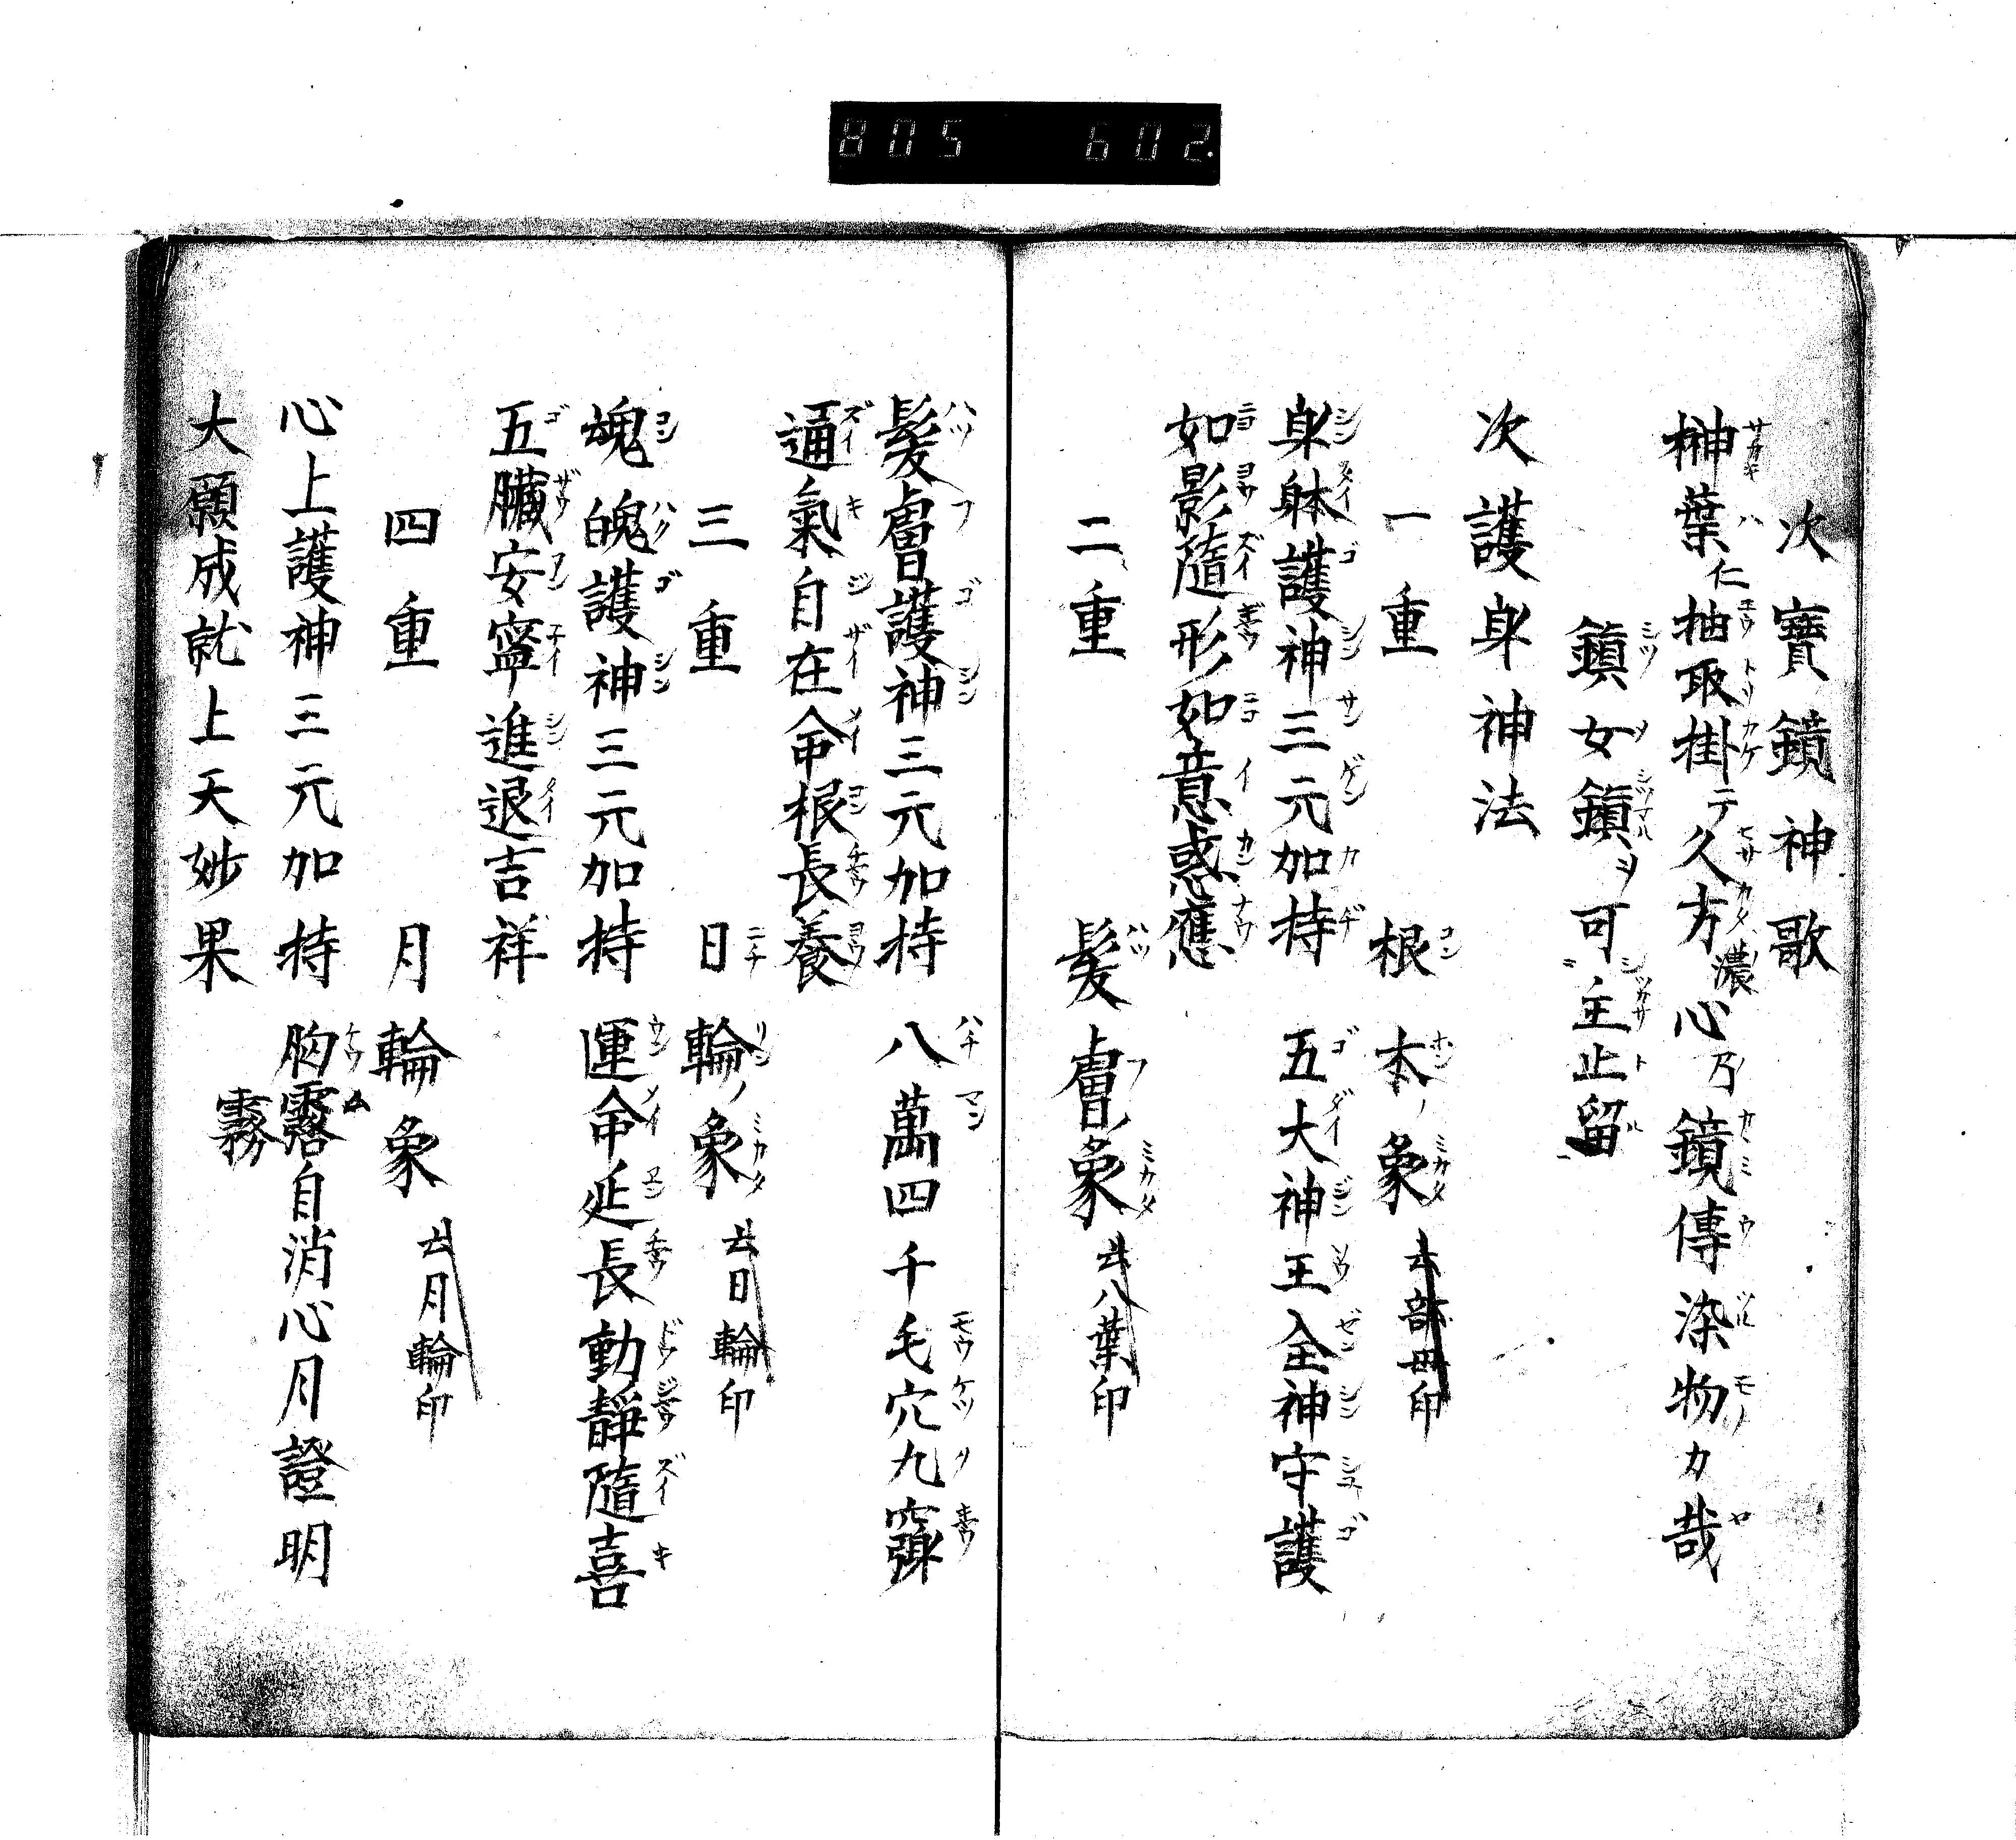 805 602.
次寶鏡神歌
榊葉仁抽取掛テ久方濃心乃鏡傳染物カ哉
鎮女鎮ヲ可主止留
次護身神法
一重 根本ノ象 去部母印
身躰護神三元加持 五大神王全神守護
如影隨形如意感應
二重 髪膚ノ象 去八葉印
髪膚護神三元加持 八萬四千毛穴九竅
通氣自在命根長養
三重 日輪ノ象 去日輪印
魂魄護神三元加持 運命延長動靜隨喜
五臓安寧進退吉祥
四重 月輪象 去月輪印
心上護神三元加持 胸霧自消心月證明
霧
大願成就上天妙果